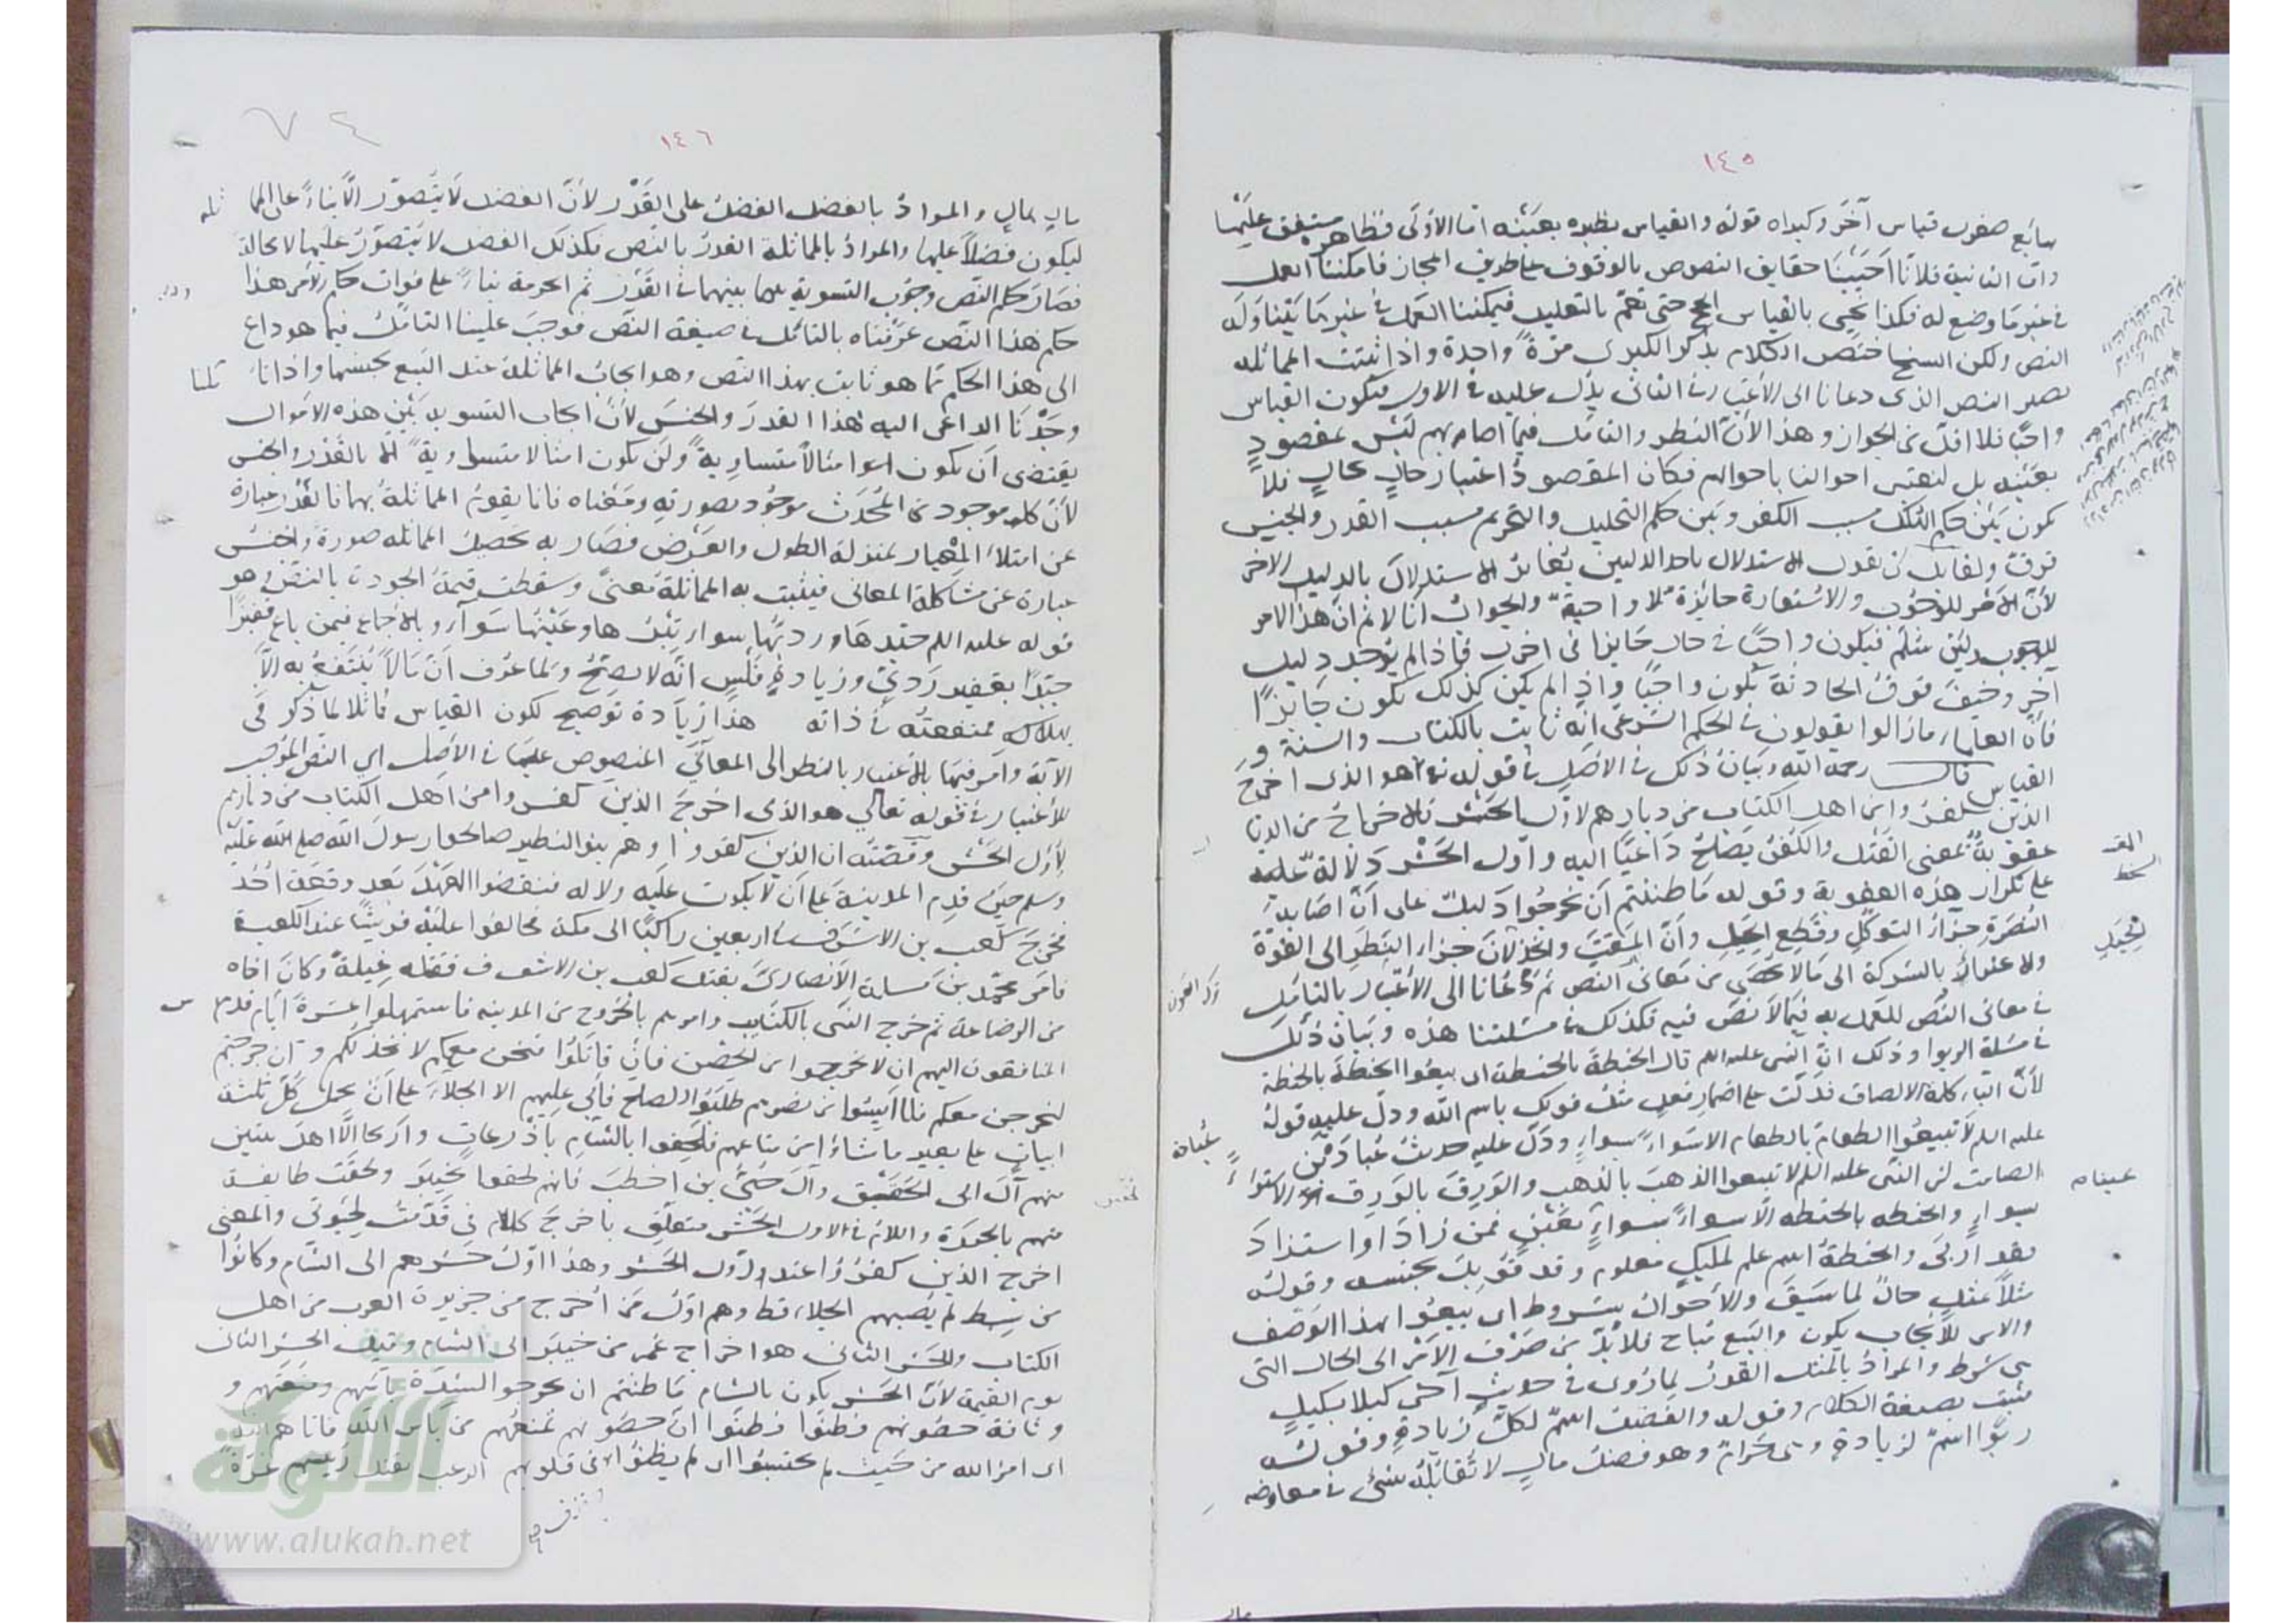 ١٤٥
سايع صغرى قياس آخر وكبراه قوله والقياس نظيره بعينه اما الأولى فظاهره متفق عليها
واما الثانية فلانا احيينا حقايق النصوص بالوقوف على طريق المجاز فامكننا العمل
في غير ما وضع له فكذا نحيى بالقياس الحج حتى نعم بالتعليل فيمكننا العمل في غير ما يتناوله
النص ولكن الشيخ اختصر الكلام بذكر الكبرى مرة واحدة واذا ثبتت المماثلة
يصير النص الذى دعانا الى الأعتبار في الثانى يدل عليه في الاول فيكون القياس
واجبا فلا اقل من الجواز وهذا لأن النظر والتامل فيما اصابهم ليس بمقصود
بعينه بل لنعتبر احوالنا باحوالهم فكان المقصود اعتبار حال بحال فلا
يكون بين حكم الهلاك بسبب الكفر وبين حكم التحليل والتحريم بسبب القدر والجنس
فرق ولقايل ان يقول الاستدلال باحد الدليلين يغاير الاستدلال بالدليل الاخر
لأن الأمر للوجوب والاستعارة جائزة لا واجبة والجواب أنا لا نم ان هذا الامر
للوجوب ولئن سلم فيكون واجبا في حال جايزا في اخرى فاذا لم يوجد دليل
آخر وخيف فوت الحادثة يكون واجبا واذا لم يكن كذلك يكون جايزا
فان العلماء ما زالوا يقولون في الحكم الشرعى انه ثابت بالكتاب والسنة و
القياس قال رحمه الله وبيان ذلك في الأصل في قوله تع هو الذى اخرج
الذين كفروا من اهل الكتاب من ديارهم لاول الحشر فالاخراج من الديار
عقوبة بمعنى القتل والكفر يصلح داعيا اليه واول الحشر دلالة على
على تكرار هذه العقوبة وقوله ما ظننتم أن يخرجوا دليل على أن اصابة
النصرة جزاء التوكل وقطع الحيل وأن المقت والخذلان جزاء النظر الى القوة
والاغترار بالشوكة الى مالا يحصى من معانى النص ثم دعانا الى الأعتبار بالتامل
في معانى النص للعمل به فيما لا نص فيه فكذلك في مسئلتنا هذه وبيان ذلك
في مسئلة الربوا وذلك ان النبى عليه السلم قال الحنطة بالحنطة اى بيعوا الحنطة بالحنطة
لأن الباء كلمة الالصاق فدلت على اضمار فعل مثل قولك باسم الله ودل عليه قوله
عليه السلم لا تبيعوا الطعام بالطعام الا سواء بسواء ودل عليه حديث عبادة بن
الصامت ان النبى عليه السلم لا تبيعوا الذهب بالذهب والورق بالورق الا سواء
بسواء والحنطه بالحنطه الا سواء بسواء بعين فمن زاد او استزاد
فقد اربى والحنطة اسم علم لمكيل معلوم وقد قوبل بجنسه وقوله
مثلا بمثل حال لما سبق والأحوال شروط اى بيعوا بهذا الوصف
والامر للأيجاب يكون والبيع مباح فلا بد من صرف الأمر الى الحال التى
هى شرط والمراد بالمثل القدر لما روى في حديث آخر كيلا بكيل
فثبت بصيغة الكلام وقوله والفضل اسم لكل زيادة وقوله
ربوا اسم لزيادة هى حرام وهو فضل مال لا يقابله شئ في معاوضه
مال

١٤٦
٧٤
مال بمال والمراد بالفضل الفضل على القدر لأن الفضل لا يتصور الا بناء على المماثله
ليكون فضلا عليها والمراد بالمماثلة القدر بالنص فكذلك الفضل لا يتصور عليها لا محالة
فصار حكم النص وجوب التسوية بينهما في القدر ثم الحرمة بناء على فوات حكم الأمر هذا
حكم هذا النص عرفناه بالتامل في صيغة النص فوجب علينا التامل فيما هو داع
الى هذا الحكم مما هو ثابت بهذا النص وهو ايجاب المماثلة عند البيع بجنسها واذا تاملنا
وجدنا الداعى اليه هذا القدر والجنس لأن ايجاب التسوية بين هذه الأموال
يقتضى أن يكون امثالا متساوية ولن يكون امثالا متساوية الا بالقدر والجنس
لأن كل موجود من المحدث موجود بصورته ومعناه فانما يقوم المماثلة بهما فالقدر عبارة
عن امتلاء المعيار بمنزلة الطول والعرض فصار به يحصل المماثله صورة والجنس
عبارة عن مشاكلة المعانى فيثبت به المماثلة معنى وسقطت قيمة الجودة بالنص وهو
قوله عليه السلم جيدها ورديها سواء تبرها وعينها سواء وبالأجماع فيمن باع قفيزا
جيدا بقفيز ردئ وزيادة فلس انه لا يصح ولما عرف أن مالا ينتفع به الا
بهلاكه فمنفعته في ذاته هذا زيادة توضيح لكون القياس مماثلا لما ذكر فى
الآية وامر فيها بالأعتبار بالنظر الى المعانى المنصوص عليها في الأصل اى النص الموجب
للأعتبار في قوله تعالى هو الذى اخرج الذين كفروا من اهل الكتاب من ديارهم
لأول الحشر وقصته ان الذين كفروا وهم بنو النضير صالحوا رسول الله صلى الله عليه
وسلم حين قدم المدينة على أن لا يكون عليه ولا له فنقضوا العهد بعد وقعة احد
فخرج كعب بن الاشرف في اربعين راكبا الى مكة فحالفوا عليه قريشا عند الكعبة
فامر محمد بن مسلمة الأنصارى بقتل كعب بن الاشرف فقتله غيلة وكان اخاه
من الرضاعة ثم خرج النبى بالكتايب وامرهم بالخروج من المدينه فاستمهلوا عشرة ايام فدس
المنافقون اليهم ان لا تخرجوا من الحصن فان قاتلوا فنحن معكم لا نخذلكم وان خرجتم
لنخرجن معكم فلما آيسوا من نصرهم طلبوا الصلح فأبى عليهم الا الجلاء على أن يحمل كل ثلثة
ابيات على بعير ما شاؤا من متاعهم فلحقوا بالشام باذرعات واريحا الا اهل بيتين
منهم آل ابى الحقيق وآل حيى بن اخطب فانهم لحقوا بخيبر ولحقت طايفة
منهم بالحيرة واللام في لاول الحشر متعلق باخرج كلام فى قدمت لحيوتى والمعنى
اخرج الذين كفروا عند اول الحشر وهذا اول حشرهم الى الشام وكانوا
من سبط لم يصبهم الجلاء قط وهم اول من اخرج من جزيرة العرب من اهل
الكتاب والحشر الثانى هو اخراج عمر من خيبر الى الشام وقيل الحشر الثانى
يوم القيمة لأن الحشر يكون بالشام ما ظننتم ان يخرجوا لشدة باسهم ومنعتهم و
وثاقة حصونهم وظنوا ان حصونهم تمنعهم من باس الله فاتاهم الله
اى امر الله من حيث لم يحتسبوا اى لم يظنوا فى قلوبهم الرعب بقتل رئيسهم غرة
وقذف
شبكة
الألوكة
www.alukah.net